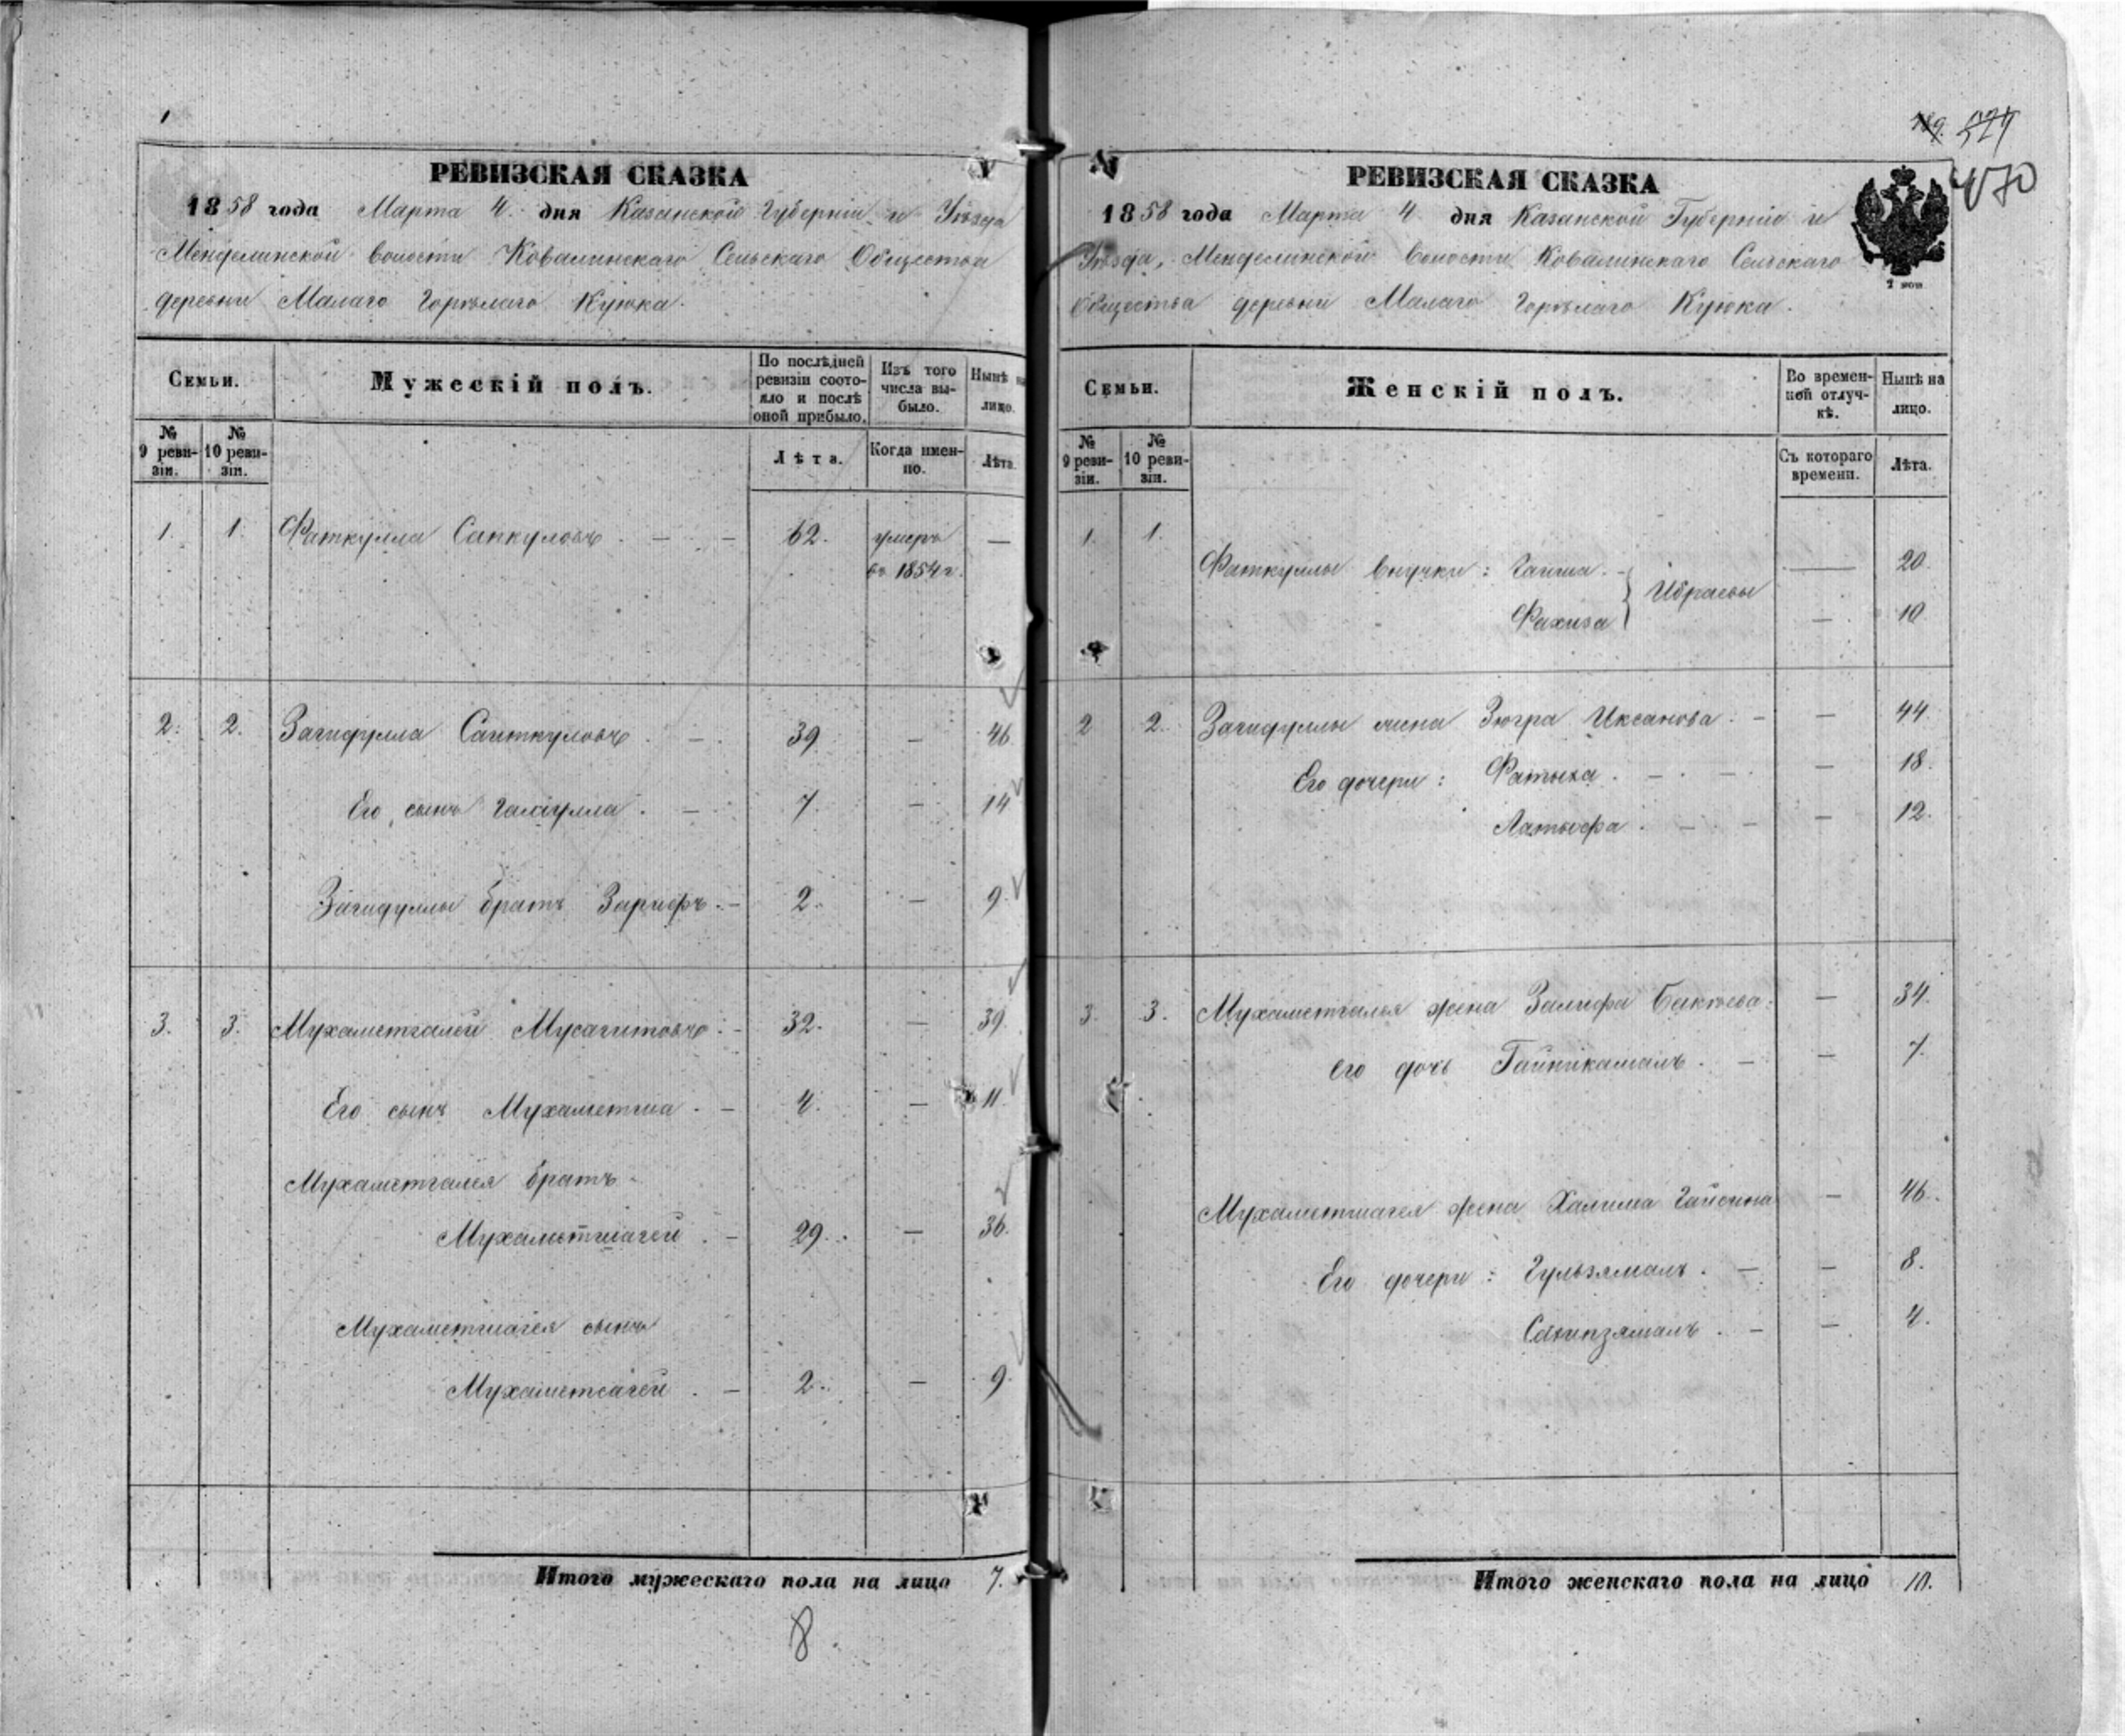 РЕВИЗСКАЯ СКАЗКА
1858 года Марта 4. дня Казанской Губернiи и Уѣзда
Менделинской волости Ковалинскаго Сельскаго Общества
деревни Малаго Горѣлаго Куюка.
Семьи.
Мужескій полъ.
По послѣдней ревизіи состояло и послѣ оной прибыло.
Изъ того числа выбыло.
Нынѣ на лицо.
№ 9 ревизіи.
№ 10 ревизіи.
Лѣта.
Когда именно.
Лѣта.
1. 1. Фаткулла Саткуловъ . — — 62. умеръ —
въ 1854 г.
2. 2. Загидулла Саиткуловъ . — 39 — 46.
Его сынъ Галiулла . — 7 — 14
Загидуллы братъ Зарифъ . — 2. — 9.
3. 3. Мухаметгалей Мусагитовъ . — 32. — 39.
Его сынъ Мухаметша . — 4. — 11.
Мухаметгалея братъ
Мухаметшагей . — 29. — 36.
Мухаметшагея сынъ
Мухаметсагей . — 2. — 9.
Итого мужескаго пола на лицо 7.
8.
529
470
РЕВИЗСКАЯ СКАЗКА
1858 года Марта 4 дня Казанской Губернiи и
Уѣзда, Менделинской Волости Ковалинскаго Сельскаго
Общества деревни Малаго Горѣлаго Куюка.
Семьи.
Женскій полъ.
Во временной отлучкѣ.
Нынѣ на лицо.
№ 9 ревизіи.
№ 10 ревизіи.
Съ котораго времени.
Лѣта.
1. 1.
Фаткуллы внучки: Гайша . — Ибраевы — 20.
Фахиза — 10
2 2. Загидуллы жена Зюгра Иксанова . — — 44
Его дочери: Фатыха . — . — — 18.
Латыфа . — . — — 12.
3. 3. Мухаметгалея жена Залифа Бактева . — 34.
его дочь Гайникамалъ . — — 7.
Мухаметшагея жена Халима Гайсина — 46.
Его дочери: Гульзямалъ . — — 8.
Сагипзямалъ . — — 4.
Итого женскаго пола на лицо 10.